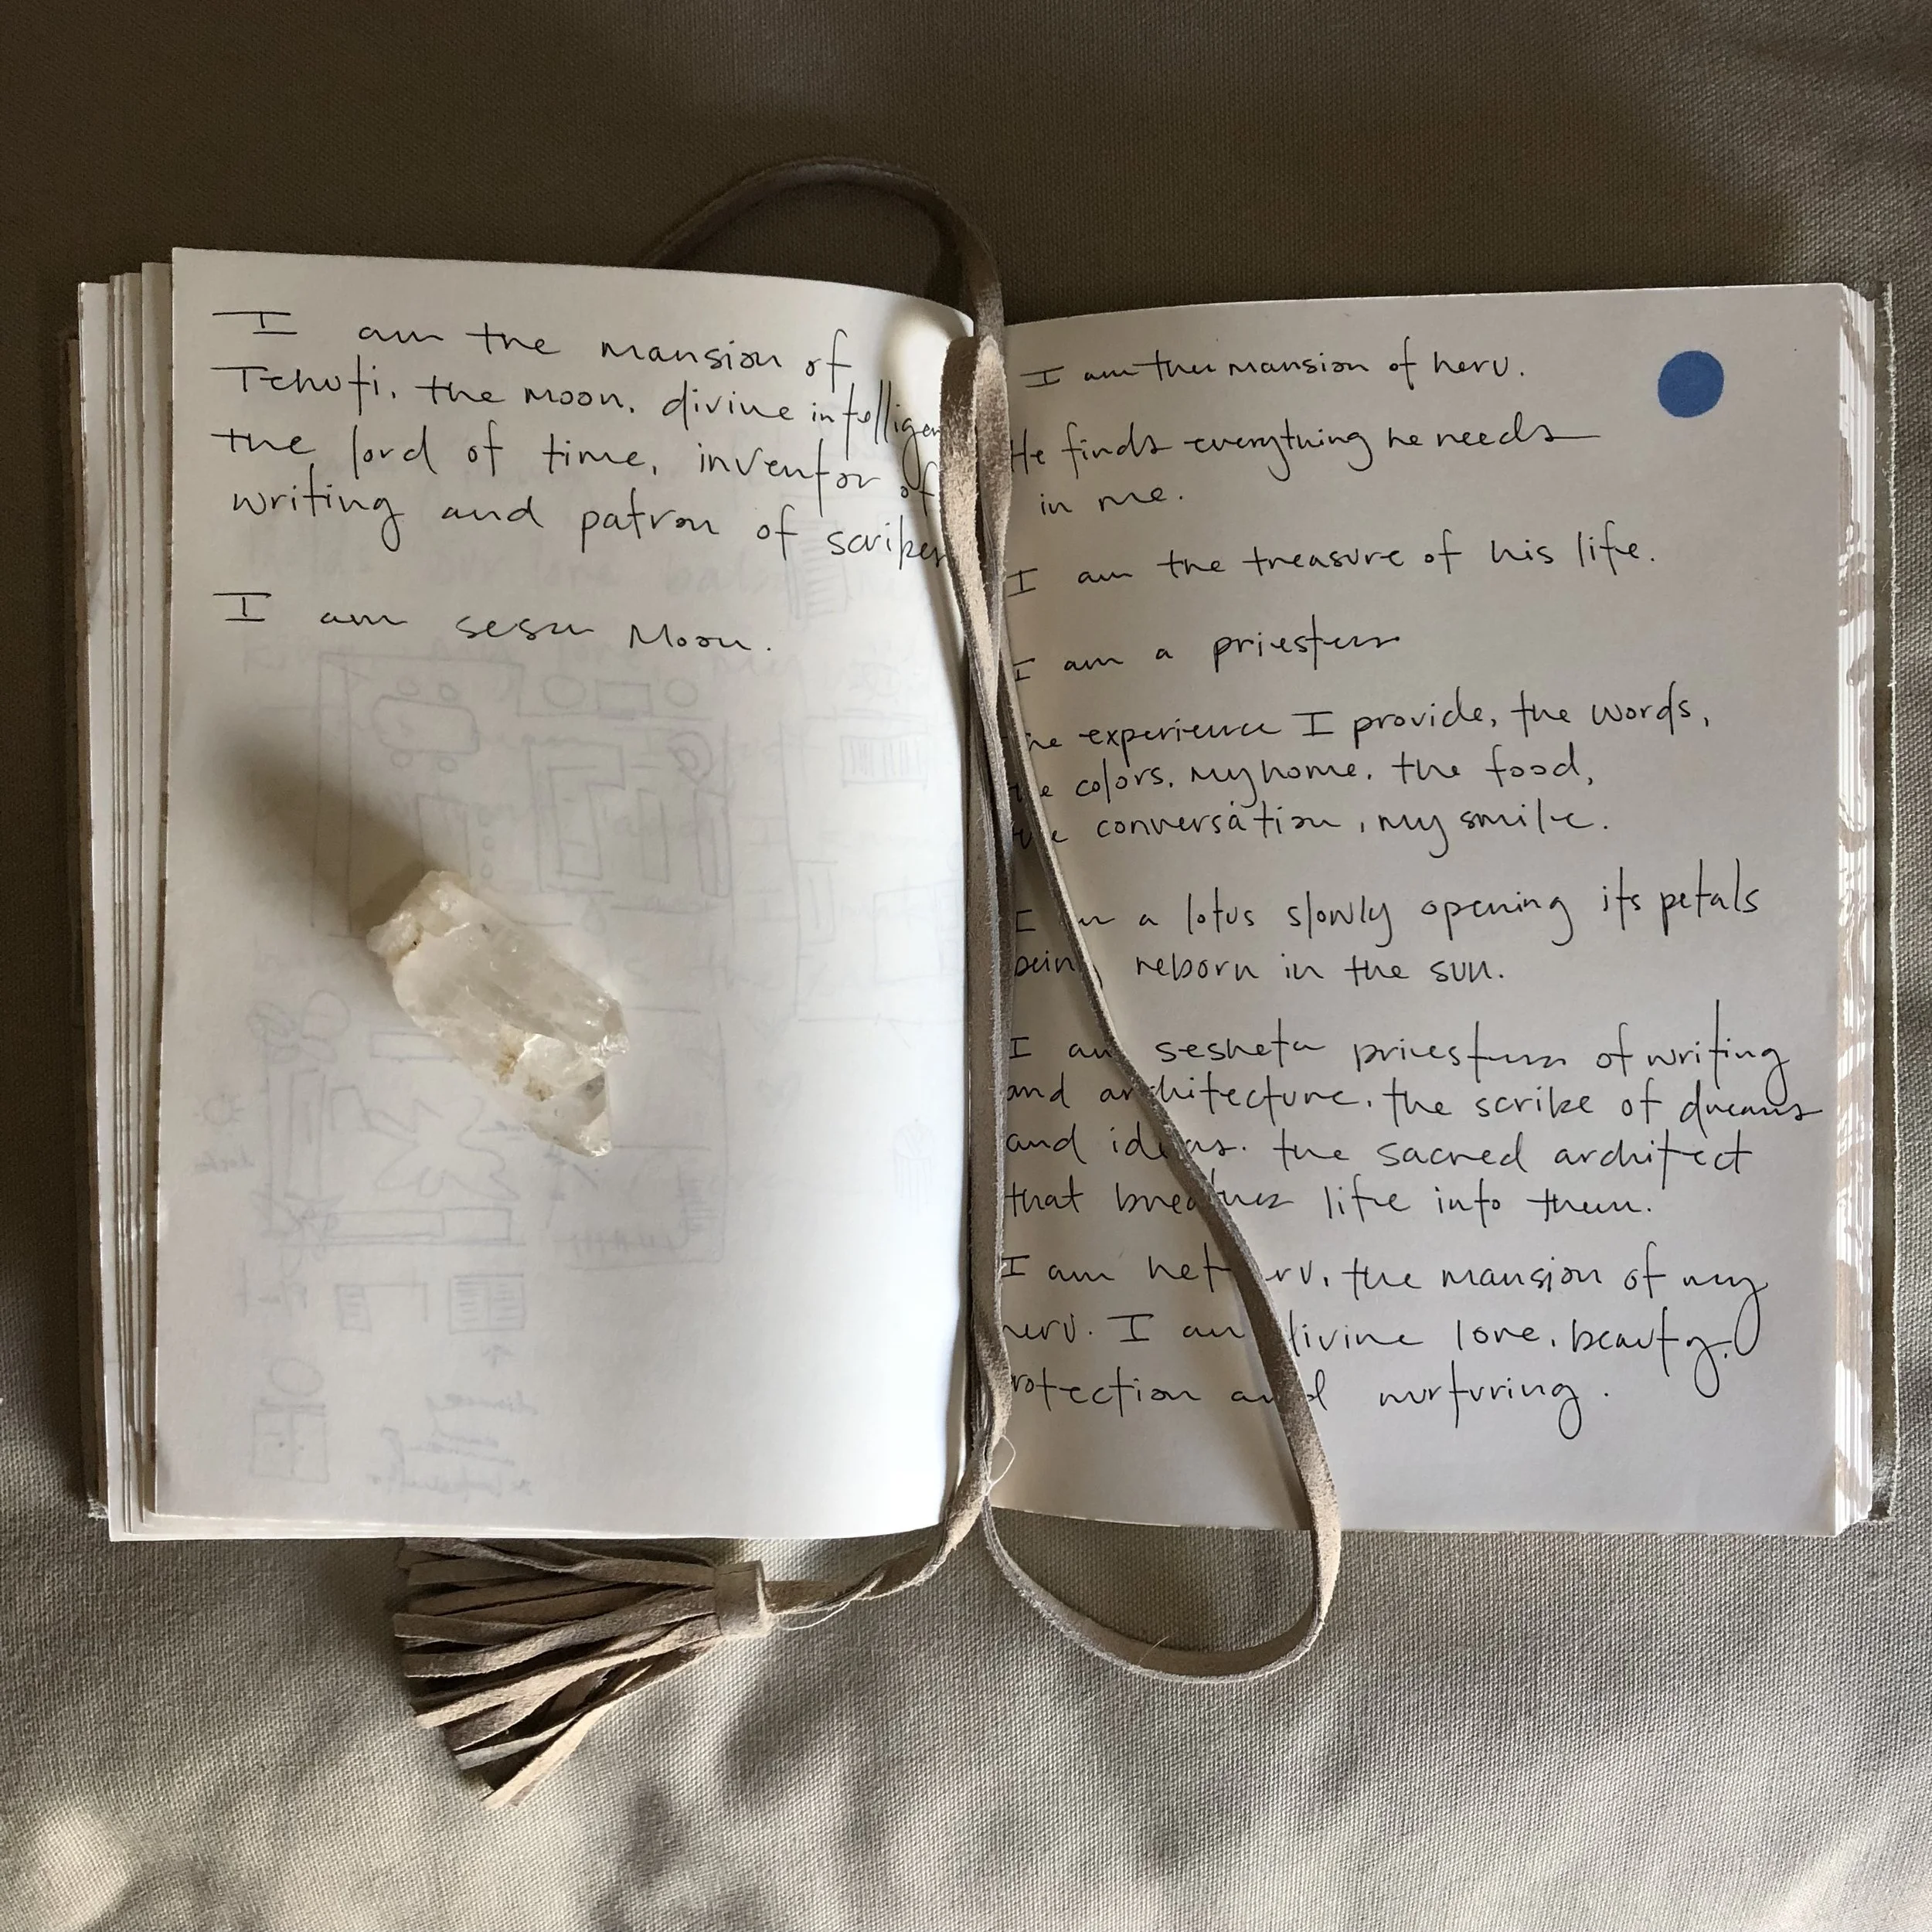 I am the mansion of
Tehuti, the moon, divine intelligen
the lord of time, inventor of
writing and patron of scribes
I am sesh Moon.
I am the mansion of heru.
He finds everything he needs
in me.
I am the treasure of his life.
I am a priestess
he experience I provide, the words,
e colors, my home, the food,
conversation, my smile.
I a lotus slowly opening its petals
being reborn in the sun.
I am sesheta priestess of writing
and architecture, the scribe of dreams
and ideas. the sacred architect
that breathes life into them.
I am het ru, the mansion of my
heru. I am divine love, beauty,
rotection and nurturing.